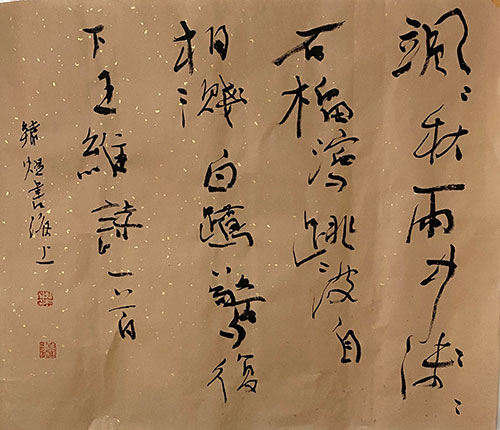 颯〻秋雨中淺〻
石榴瀉跳波自
相濺白鷺驚復
下王維詩一首
書海上